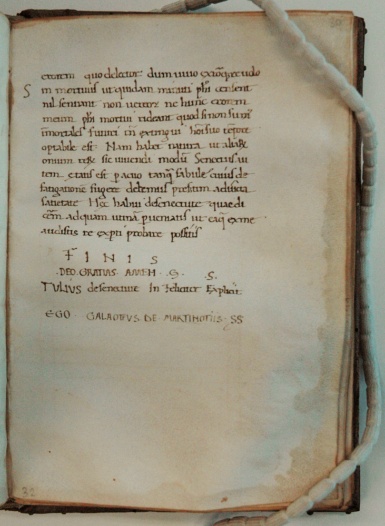 errorem quo delector dum uiuo extorqueri uolo
S in mortuus ut quidam minuti phi censent
nil sentiam non uereor ne hunc errorem
meum phi mortui rideant quod si non sum9
immortales futuri tn extingui hoi suo tempore
optabile est Nam habet natura ut aliarum
omnium rerum sic uiuendi modum Senectus au
tem etatis est pactio tanq fabule cuius de
fatigationem fugere debemus presertim adiuncta
satietate Hec habui de senectute que di
cerem ad quam utinam pueniatis ut ea q ex me
audistis re experti probare possitis
F I N I S
DEO GRATIAS AMEN S S.
TULIUS de senectute In feliciter Explicit
EGO GALAOTUS DE MARTINOTIIS SS